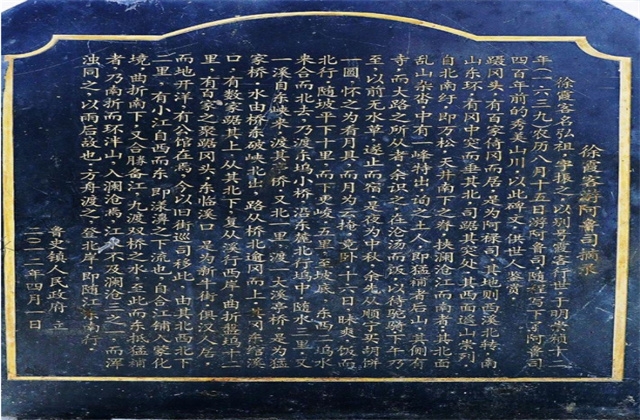 徐霞客游阿鲁司摘录
徐霞客名弘祖，字振之，以别号霞客行世。于明崇祯十二
年（一六三九）农历八月十五日游阿鲁司，随程写下了阿鲁司
四百年前的秀美山川，以此碑文，供世人鉴赏。
蹑冈头，有百家倚冈而居，是为阿禄司。其地则西溪北转，南
山东环，有冈中突而垂其北，司踞其突处。其西面遥山崇列，
自北南纡，即万松、天井南下之脊，挟澜沧江而南者；其北面
乱山杂沓，中有一峰特出，询之土人，即猛补者后山，其侧有
寺，而大路之所从者。余识之，在沧汤而饭，以待驼骑。下午乃
至，以前无水草，遂止而宿。是夜为中秋，余先从顺宁买胡饼
一圆，怀之为看月具，而月为云掩，竟卧。十六日昧爽，饭而
北行。随坡平下十里，而下更峻，五里至坡底，东西二坞水
来合而北去，乃渡东坞小桥，沿东麓北行坞中。随水三里，又
一溪自东峡来，渡其亭桥，又北一里，渡一大溪亭桥，是为猛
家桥。水由桥东破峡北出，路从桥北逾冈而上。其冈东绾溪
口，有数家踞其上。从其北下，复从溪行西岸，曲折盘坞十二
里，有百家之聚踞冈头，东临溪口，是为新牛街，俱汉人居，
而地开洋，有公馆在焉，今以旧街巡司移此。由其北西北下
二里，有小江自西而东，即漾濞之下流也，自合江铺入蒙化
境，曲折南下，又合胜备江、九渡、双桥之水，至此而东抵猛补
者，乃南折而环泮山，入澜沧焉。江水不及澜沧三之一，而浑
浊同之，以雨后故也。方舟渡之，登北岸，即随江东南行。
鲁史镇人民政府 立
二〇一二年四月一日